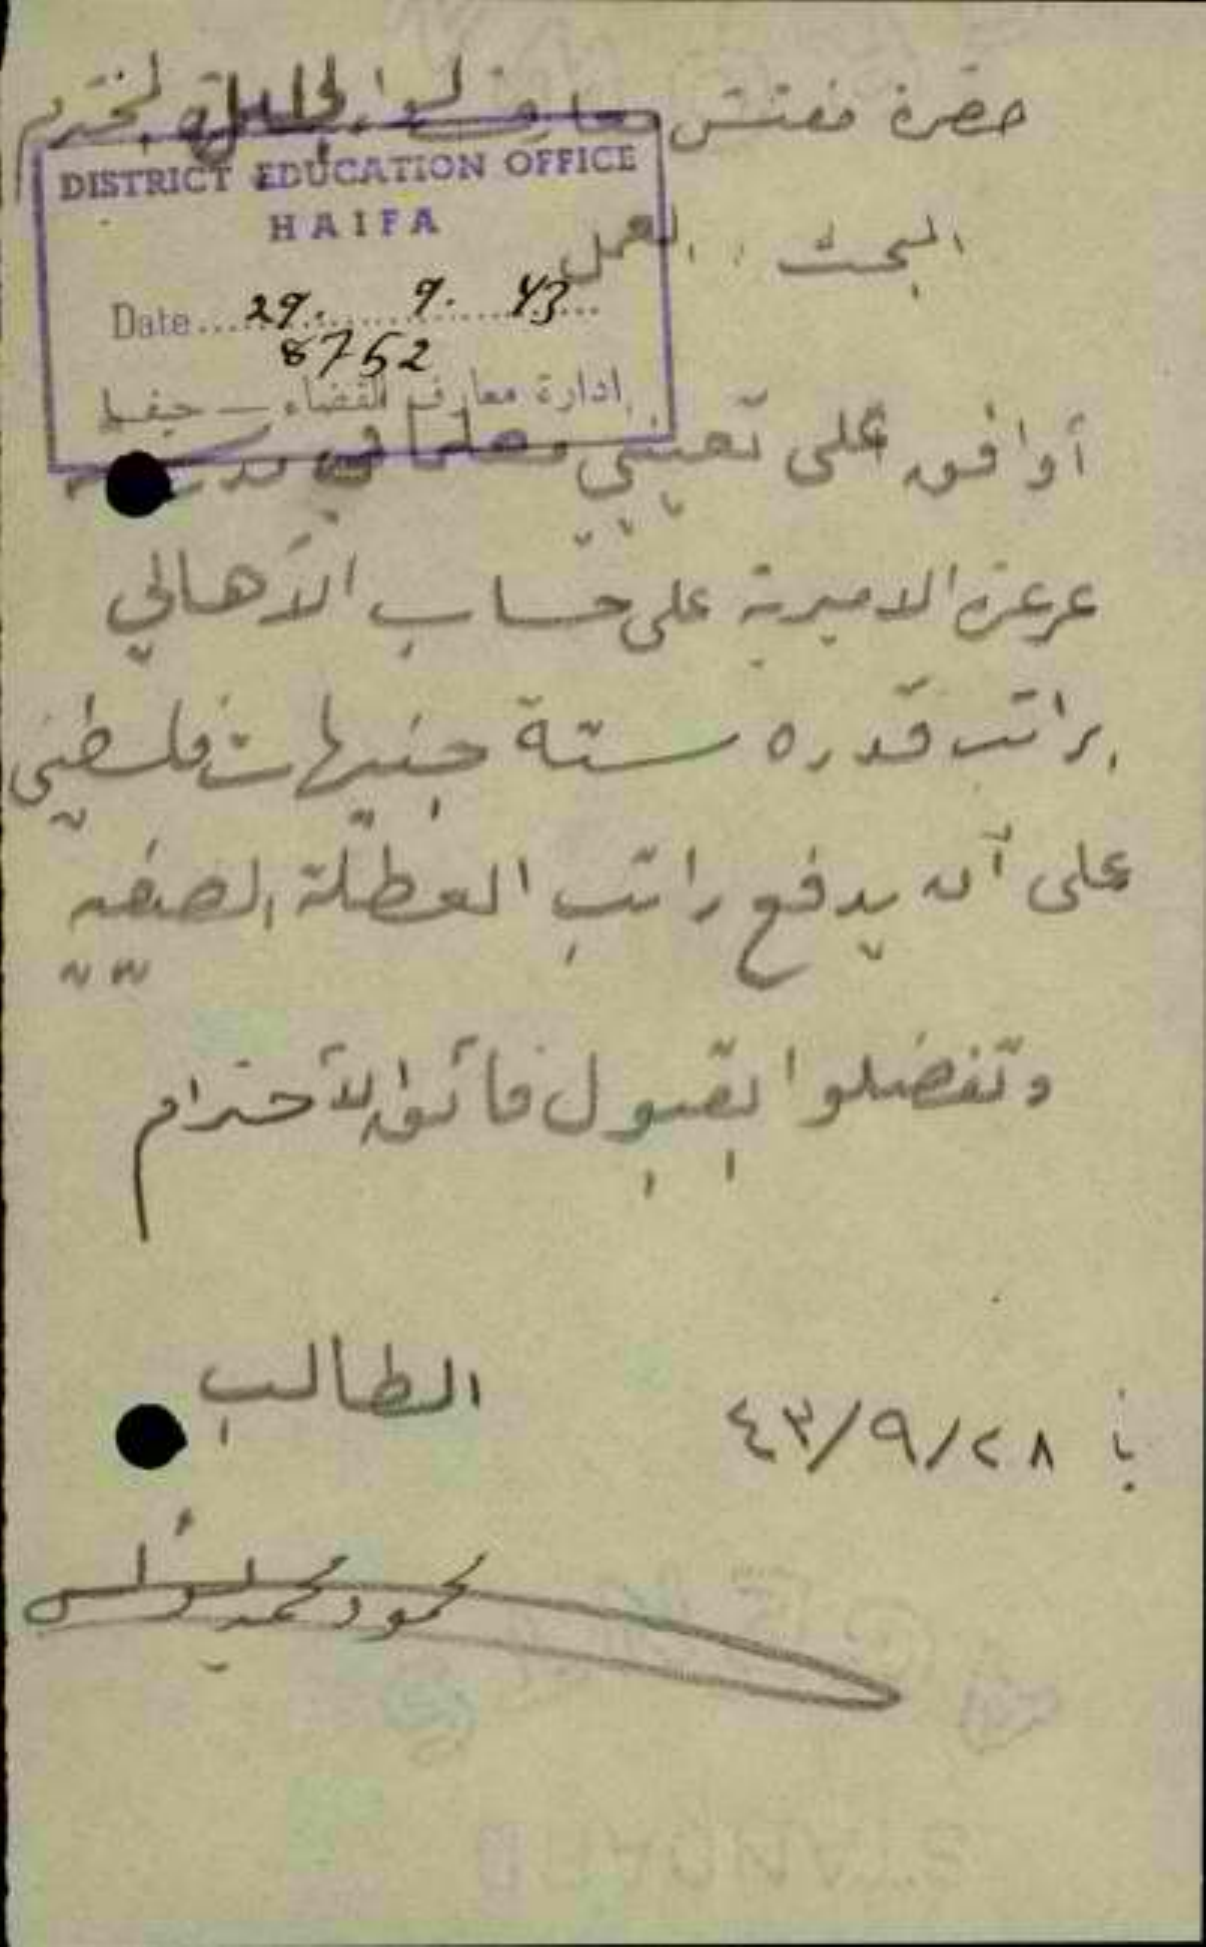 حضرة مفتش معارف لواء الجليل المحترم
DISTRICT EDUCATION OFFICE
HAIFA
البحث : العمل
Date ... 29. 9. 43
8752
ادارة معارف القضاء — حيفا
أوافق على تعييني معلما في مدرسة
عرعرة الاميرية على حساب الأهالي
براتب قدره ستة جنيهات فلسطيني
على أن يدفع راتب العطلة الصيفية
وتفضلوا بقبول فائق الأحترام
الطالب
في ٤٣/٩/٢٨
محمود محمد